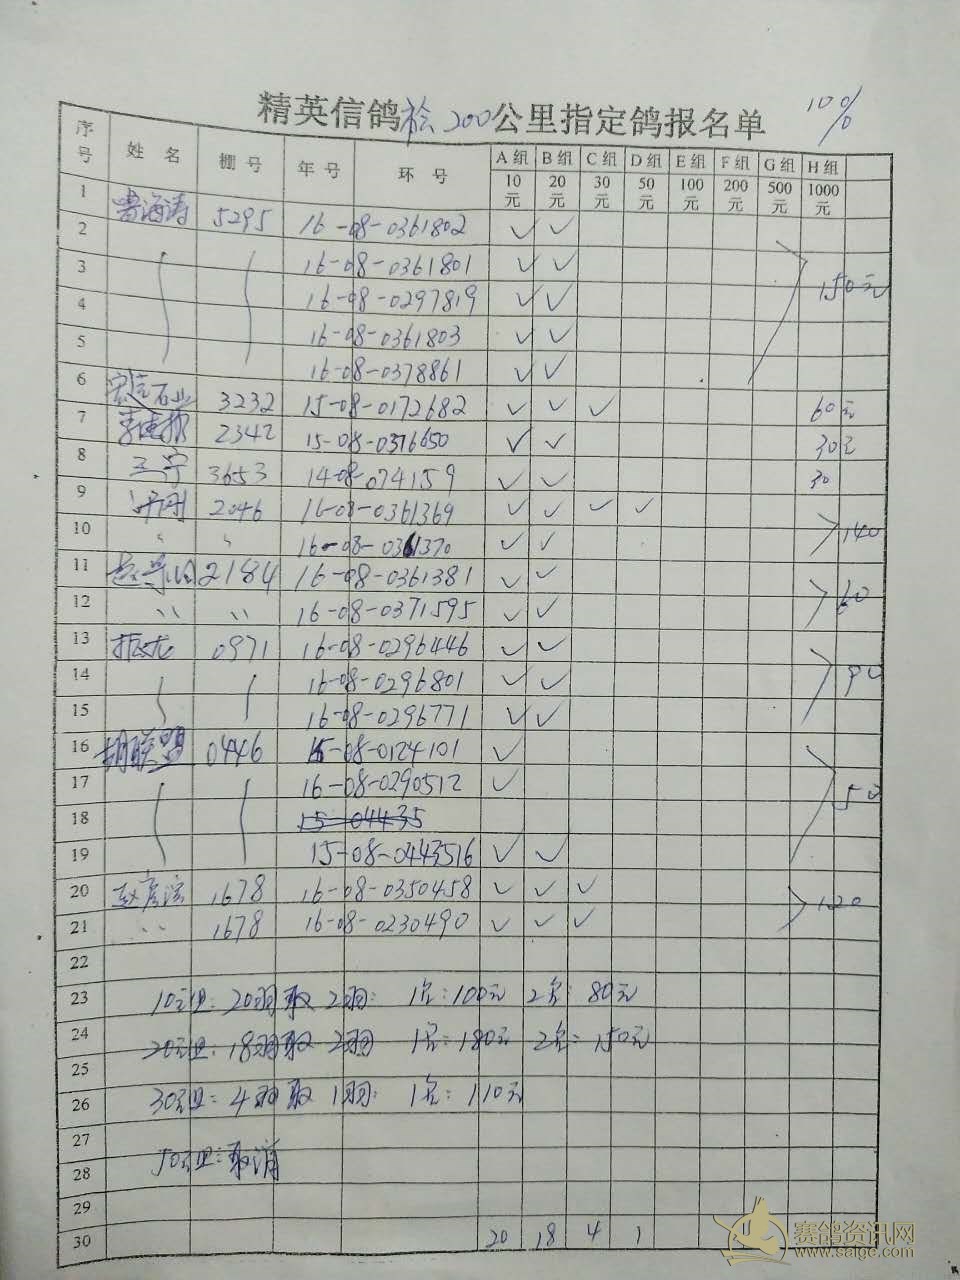 精英信鸽 200公里指定鸽报名单 10%
序号 姓 名 棚 号 年 号 环 号 A组 B组 C组 D组 E组 F组 G组 H组
10元 20元 30元 50元 100元 200元 500元 1000元
1 海涛 5295 16-08-0361802 ✓ ✓
2
3 16-08-0361801 ✓ ✓
16-08-0297819 ✓ ✓ 150元
4
5 16-08-0361803 ✓ ✓
16-08-0378861 ✓ ✓
6 石业 3232 15-08-0172682 ✓ ✓ ✓ 60元
7 2342 15-08-0376650 ✓ ✓ 30元
8 王宇 3653 14-08-074159 ✓ ✓ 30
9 2046 16-08-0361369 ✓ ✓ ✓ ✓
10 〃 〃 16-08-0361370 ✓ ✓ 140
11 2184 16-08-0361381 ✓ ✓
12 〃 〃 16-08-0371595 ✓ ✓ 60
13 0971 16-08-0296446 ✓ ✓
14 16-08-0296801 ✓ ✓ 90
15 16-08-0296771 ✓ ✓
16 胡联盟 0446 15-08-0124101 ✓
17 16-08-0290512 ✓ 50
18 15-04435
19 15-08-0443516 ✓ ✓
20 1678 16-08-0350458 ✓ ✓ ✓ 120
21 〃 1678 16-08-0230490 ✓ ✓ ✓
22
23 10元组:20羽取2羽: 1名:100元 2名:80元
24 20元组:18羽取2羽 1名:180元 2名:150元
25
26 30元组:4羽取1羽: 1名:110元
27
28 50元组:取消
29
30 20 18 4 1
赛鸽资讯网
www.saigc.com